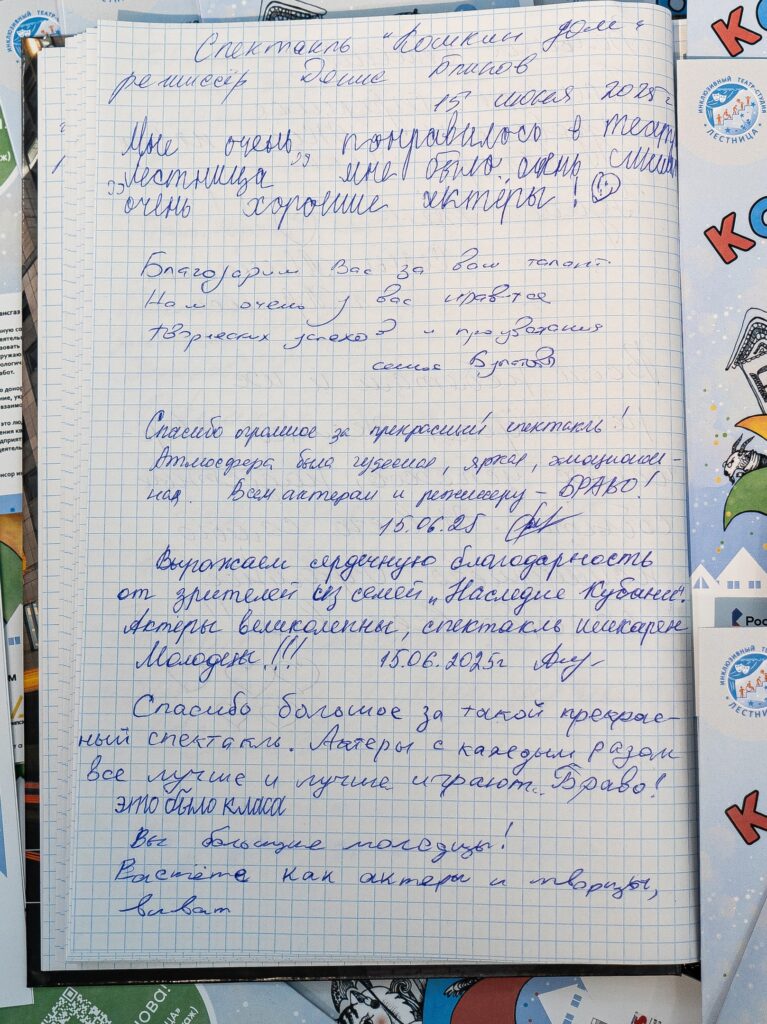 Спектакль "Кошкин дом"
режиссёр Денис
15 июня 2025 г
Мне очень понравилось в театр
"Лестница" мне было очень
очень хорошие актёры!
Благодарим Вас за ваш талант.
Нам очень у вас нравится
творческих успехов и процветания
семья
Спасибо огромное за прекрасный спектакль!
Атмосфера была чудесная, яркая, эмоциональ-
ная. Всем актерам и режиссеру - БРАВО!
15.06.25
Выражаем сердечную благодарность
от зрителей из семей „Наследие Кубани".
Актеры великолепны, спектакль шикарен
Молодцы!!! 15.06.2025г
Спасибо большое за такой прекрас-
ный спектакль. Актеры с каждым разом
все лучше и лучше играют. Браво!
это было класа
Вы большие молодцы!
Растёте как актеры и творцы,
виват
ИНКЛЮЗИВНЫЙ ТЕАТР-СТУДИЯ
ЛЕСТНИЦА
К
Рос
ИНКЛЮЗИВНЫЙ
К